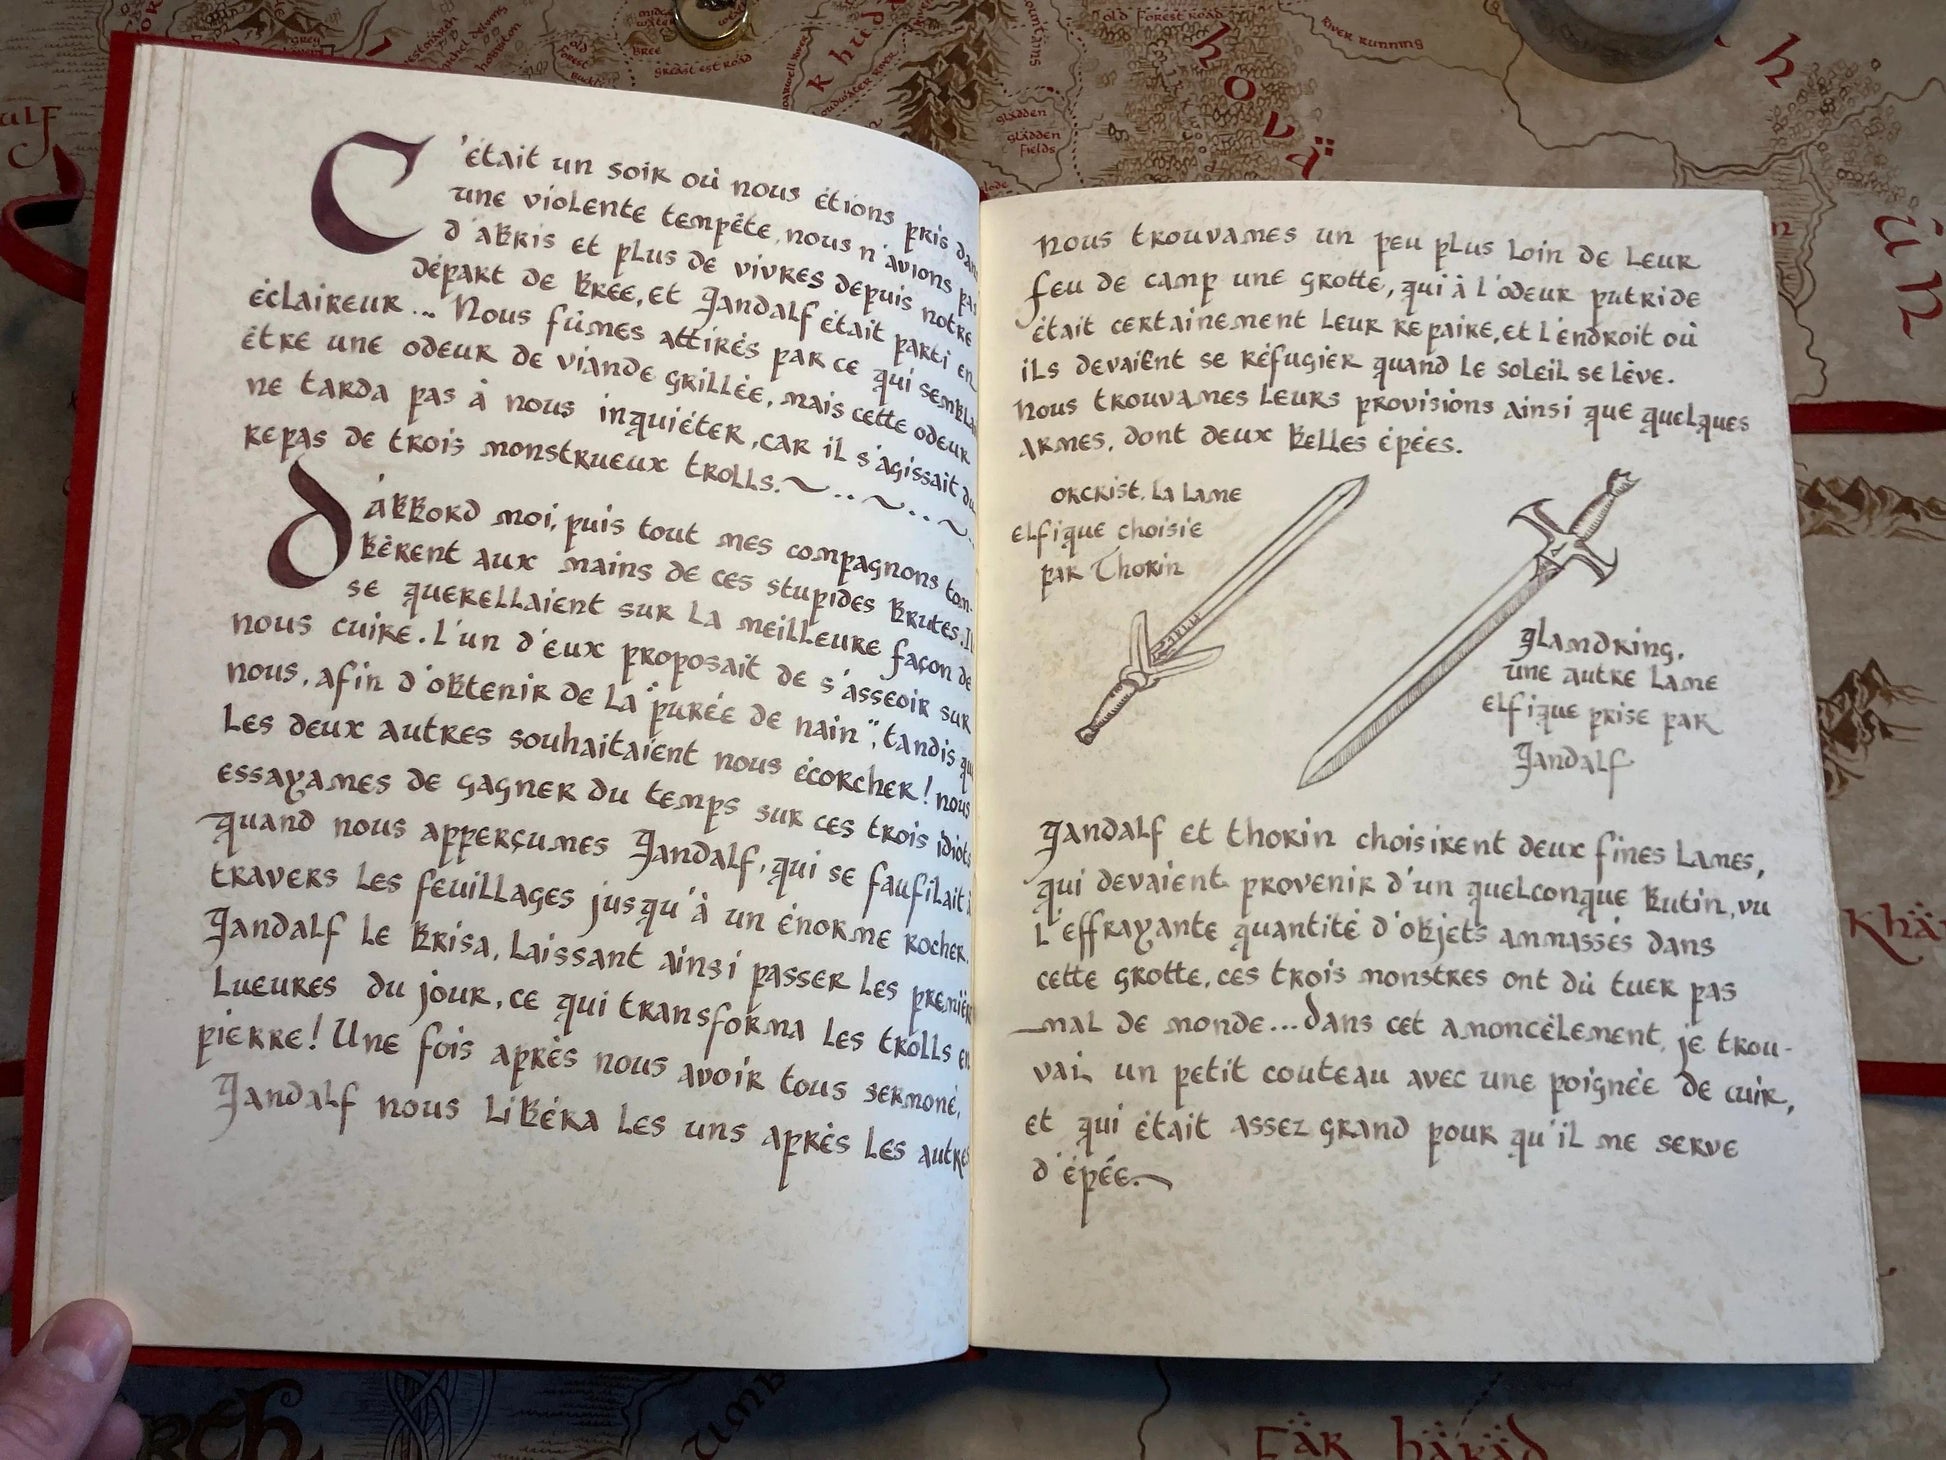 C'était un soir où nous étions pris dans
une violente tempête, nous n'avions pas
d'abris et plus de vivres depuis notre
départ de Bree, et Gandalf était parti en
éclaireur... Nous fûmes attirés par ce qui semblait
être une odeur de viande grillée, mais cette odeur
ne tarda pas à nous inquiéter, car il s'agissait du
repas de trois monstrueux trolls.
d'abbord moi, puis tout mes compagnons tom-
bèrent aux mains de ces stupides brutes. Ils
se querellaient sur la meilleure façon de
nous cuire. L'un d'eux proposait de s'asseoir sur
nous, afin d'obtenir de la "purée de nain", tandis que
les deux autres souhaitaient nous écorcher! nous
essayames de gagner du temps sur ces trois idiots
quand nous apperçumes Gandalf, qui se faufilait à
travers les feuillages jusqu'à un énorme rocher.
Gandalf le brisa, laissant ainsi passer les premières
lueures du jour, ce qui transforma les trolls en
pierre! Une fois après nous avoir tous sermoné,
Gandalf nous libéra les uns après les autres
Nous trouvames un peu plus loin de leur
feu de camp une grotte, qui à l'odeur putride
était certainement leur repaire, et l'endroit où
ils devaient se réfugier quand le soleil se lève.
Nous trouvames leurs provisions ainsi que quelques
armes, dont deux belles épées.
orcrist, la lame
elfique choisie
par Thorin
glamdring,
une autre lame
elfique prise par
Gandalf
Gandalf et thorin choisirent deux fines lames,
qui devaient provenir d'un quelconque butin, vu
l'effrayante quantité d'objets ammassés dans
cette grotte, ces trois monstres ont dû tuer pas
mal de monde... Dans cet amoncèlement, je trou-
vai un petit couteau avec une poignée de cuir,
et qui était assez grand pour qu'il me serve
d'épée.
old Forest Road
River Running
Great East Road
Bree
gladden
gladden
Fields
Khudd
Rhovan
Khä
Far Haräd